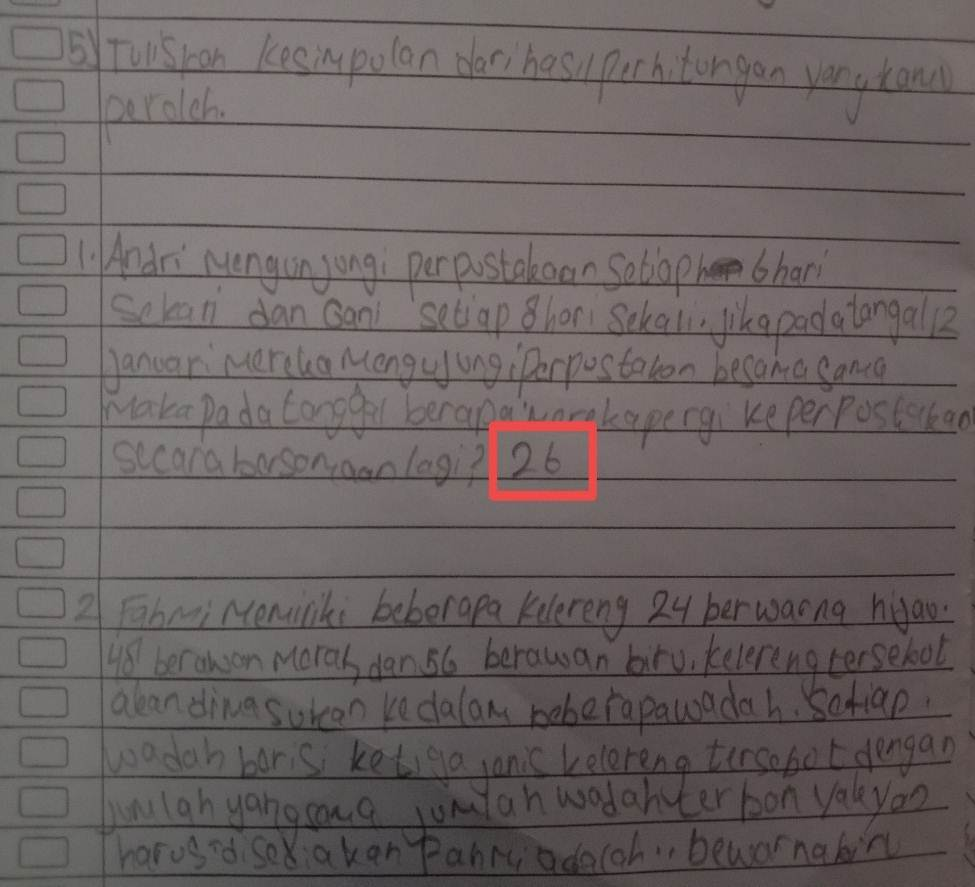 5) Tuliskan kesimpulan dari hasil perhitungan yang kamu
peroleh.
1. Andri mengunjungi perpustakaan setiap 6 hari
Sekali dan Gani setiap 8 hari sekali. jika pada tangal 12
januari mereka mengujungi perpustakan besama sama
maka pada tanggal berapa mereka pergi ke perpustakan
secara bersamaan lagi? 26
2 Fahmi memiliki beberapa kelereng 24 berwarna hijau.
48 berawan merah dan 56 berawan biru. kelereng tersebut
akan dimasukan kedalam beberapa wadah. Setiap
wadah berisi ketiga jenis kelereng tersebut dengan
jumlah yang sama jumlah wadah terbanyak yan
harus disediakan Fahmi adalah .. bewarna biru